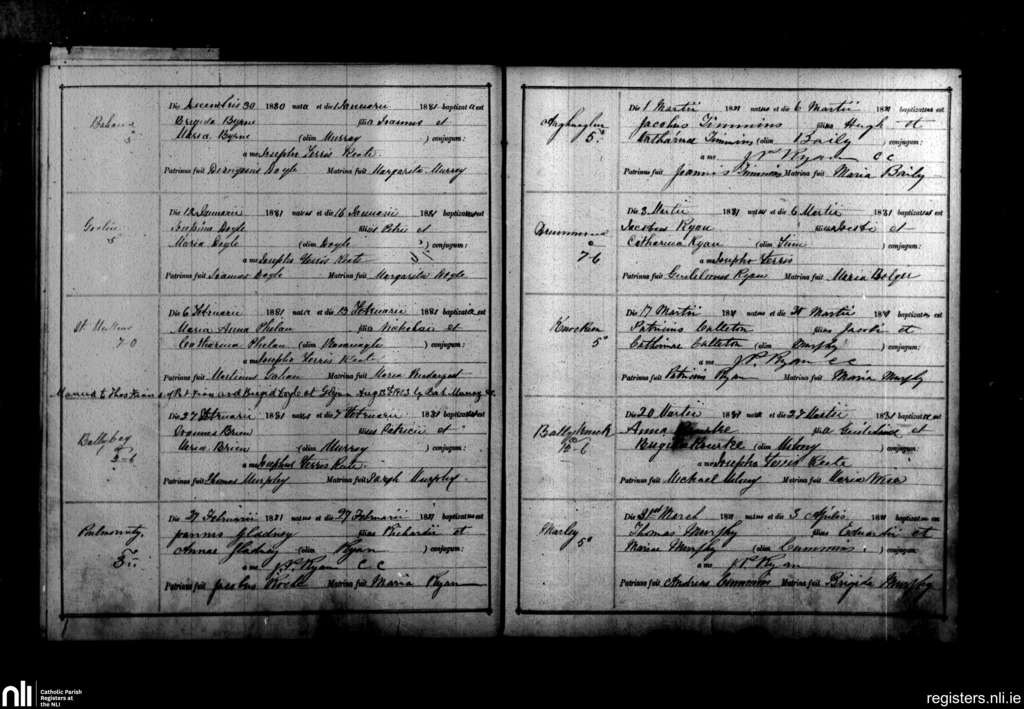 Bahana
5
Die Decembris 30 1880 nata et die 1 Januarii 1881 baptizata est
Brigida Byrne filia Joannis et
Maria Byrne (olim Murray ) conjugum:
a me Josepho Ferris Reste.
Patrinus fuit Doyle Matrina fuit Margarita Murray
5
Die 12 Januarii 1881 natus et die 16 Januarii 1881 baptizatus est
Josephus Doyle filius Petri et
Maria Doyle (olim Doyle ) conjugum:
a me Josepho Ferris Reste
Patrinus fuit Joannes Doyle Matrina fuit Margarita Doyle
St. Mullins
7-0
Die 6 Februarii 1881 nata et die 13 Februarii 1881 baptizata est
Maria Anna Phelan filia Nicholai et
Catharina Phelan (olim Kavanagh ) conjugum:
a me Josepho Ferris Reste
Patrinus fuit Martinus Matrina fuit Maria Prendergast
Married to Thos Fran of Pat Fran and Brigid Doyle at Glynn Aug 1913 by Pat Murray CC.
Ballybeg
2-6
Die 27 Februarii 1881 natus et die 7 Februarii 1881 baptizatus est
Joannes Brien filius Patricii et
Maria Brien (olim Murray ) conjugum:
a me Josepho Ferris Reste.
Patrinus fuit Thomas Murphy Matrina fuit Sarah Murphy.
5
Die 27 Februarii 1881 natus et die 27 Februarii 1881 baptizatus est
Joannes Gladney filius Richardi et
Annae Gladney (olim Ryan ) conjugum:
a me J.P. Ryan C C
Patrinus fuit Jacobus Matrina fuit Maria Ryan
5.
Die 1 Martii 1881 natus et die 6 Martii 1881 baptizatus est
Jacobus Timmins filius Hugh et
Catharina Timmins (olim Baily ) conjugum:
a me J.P Ryan C C
Patrinus fuit Joannis Timmins Matrina fuit Maria Baily
Drummond
7-6
Die 3 Martii 1881 natus et die 6 Martii 1881 baptizatus est
Jacobus Ryan filius et
Catharina Ryan (olim ) conjugum:
a me Josepho Ferris
Patrinus fuit Gulielmus Ryan Matrina fuit Maria Bolger
Knockeen
5
Die 17 Martii 1881 natus et die 20 Martii 1881 baptizatus est
Patricius Culleton filius Jacobi et
Catharinae Culleton (olim Murphy ) conjugum:
a me J.P. Ryan C C
Patrinus fuit Patricius Ryan Matrina fuit Maria Murphy
Ballyknock
10-6
Die 20 Martii 1881 nata et die 27 Martii 1881 baptizata est
Anna Rourke filia Gulielmi et
Brigida Rourke (olim ) conjugum:
a me Josepho Ferris Reste
Patrinus fuit Michael Matrina fuit Maria
Marley
5
Die 31st March 1881 natus et die 3 Aprilis 1881 baptizatus est
Thomas Murphy filius Eduardi et
Mariae Murphy (olim Cummins ) conjugum:
a me J.P. Ryan
Patrinus fuit Andreas Cummins Matrina fuit Brigida Murphy
nli Catholic Parish
Registers at
the NLI
registers.nli.ie